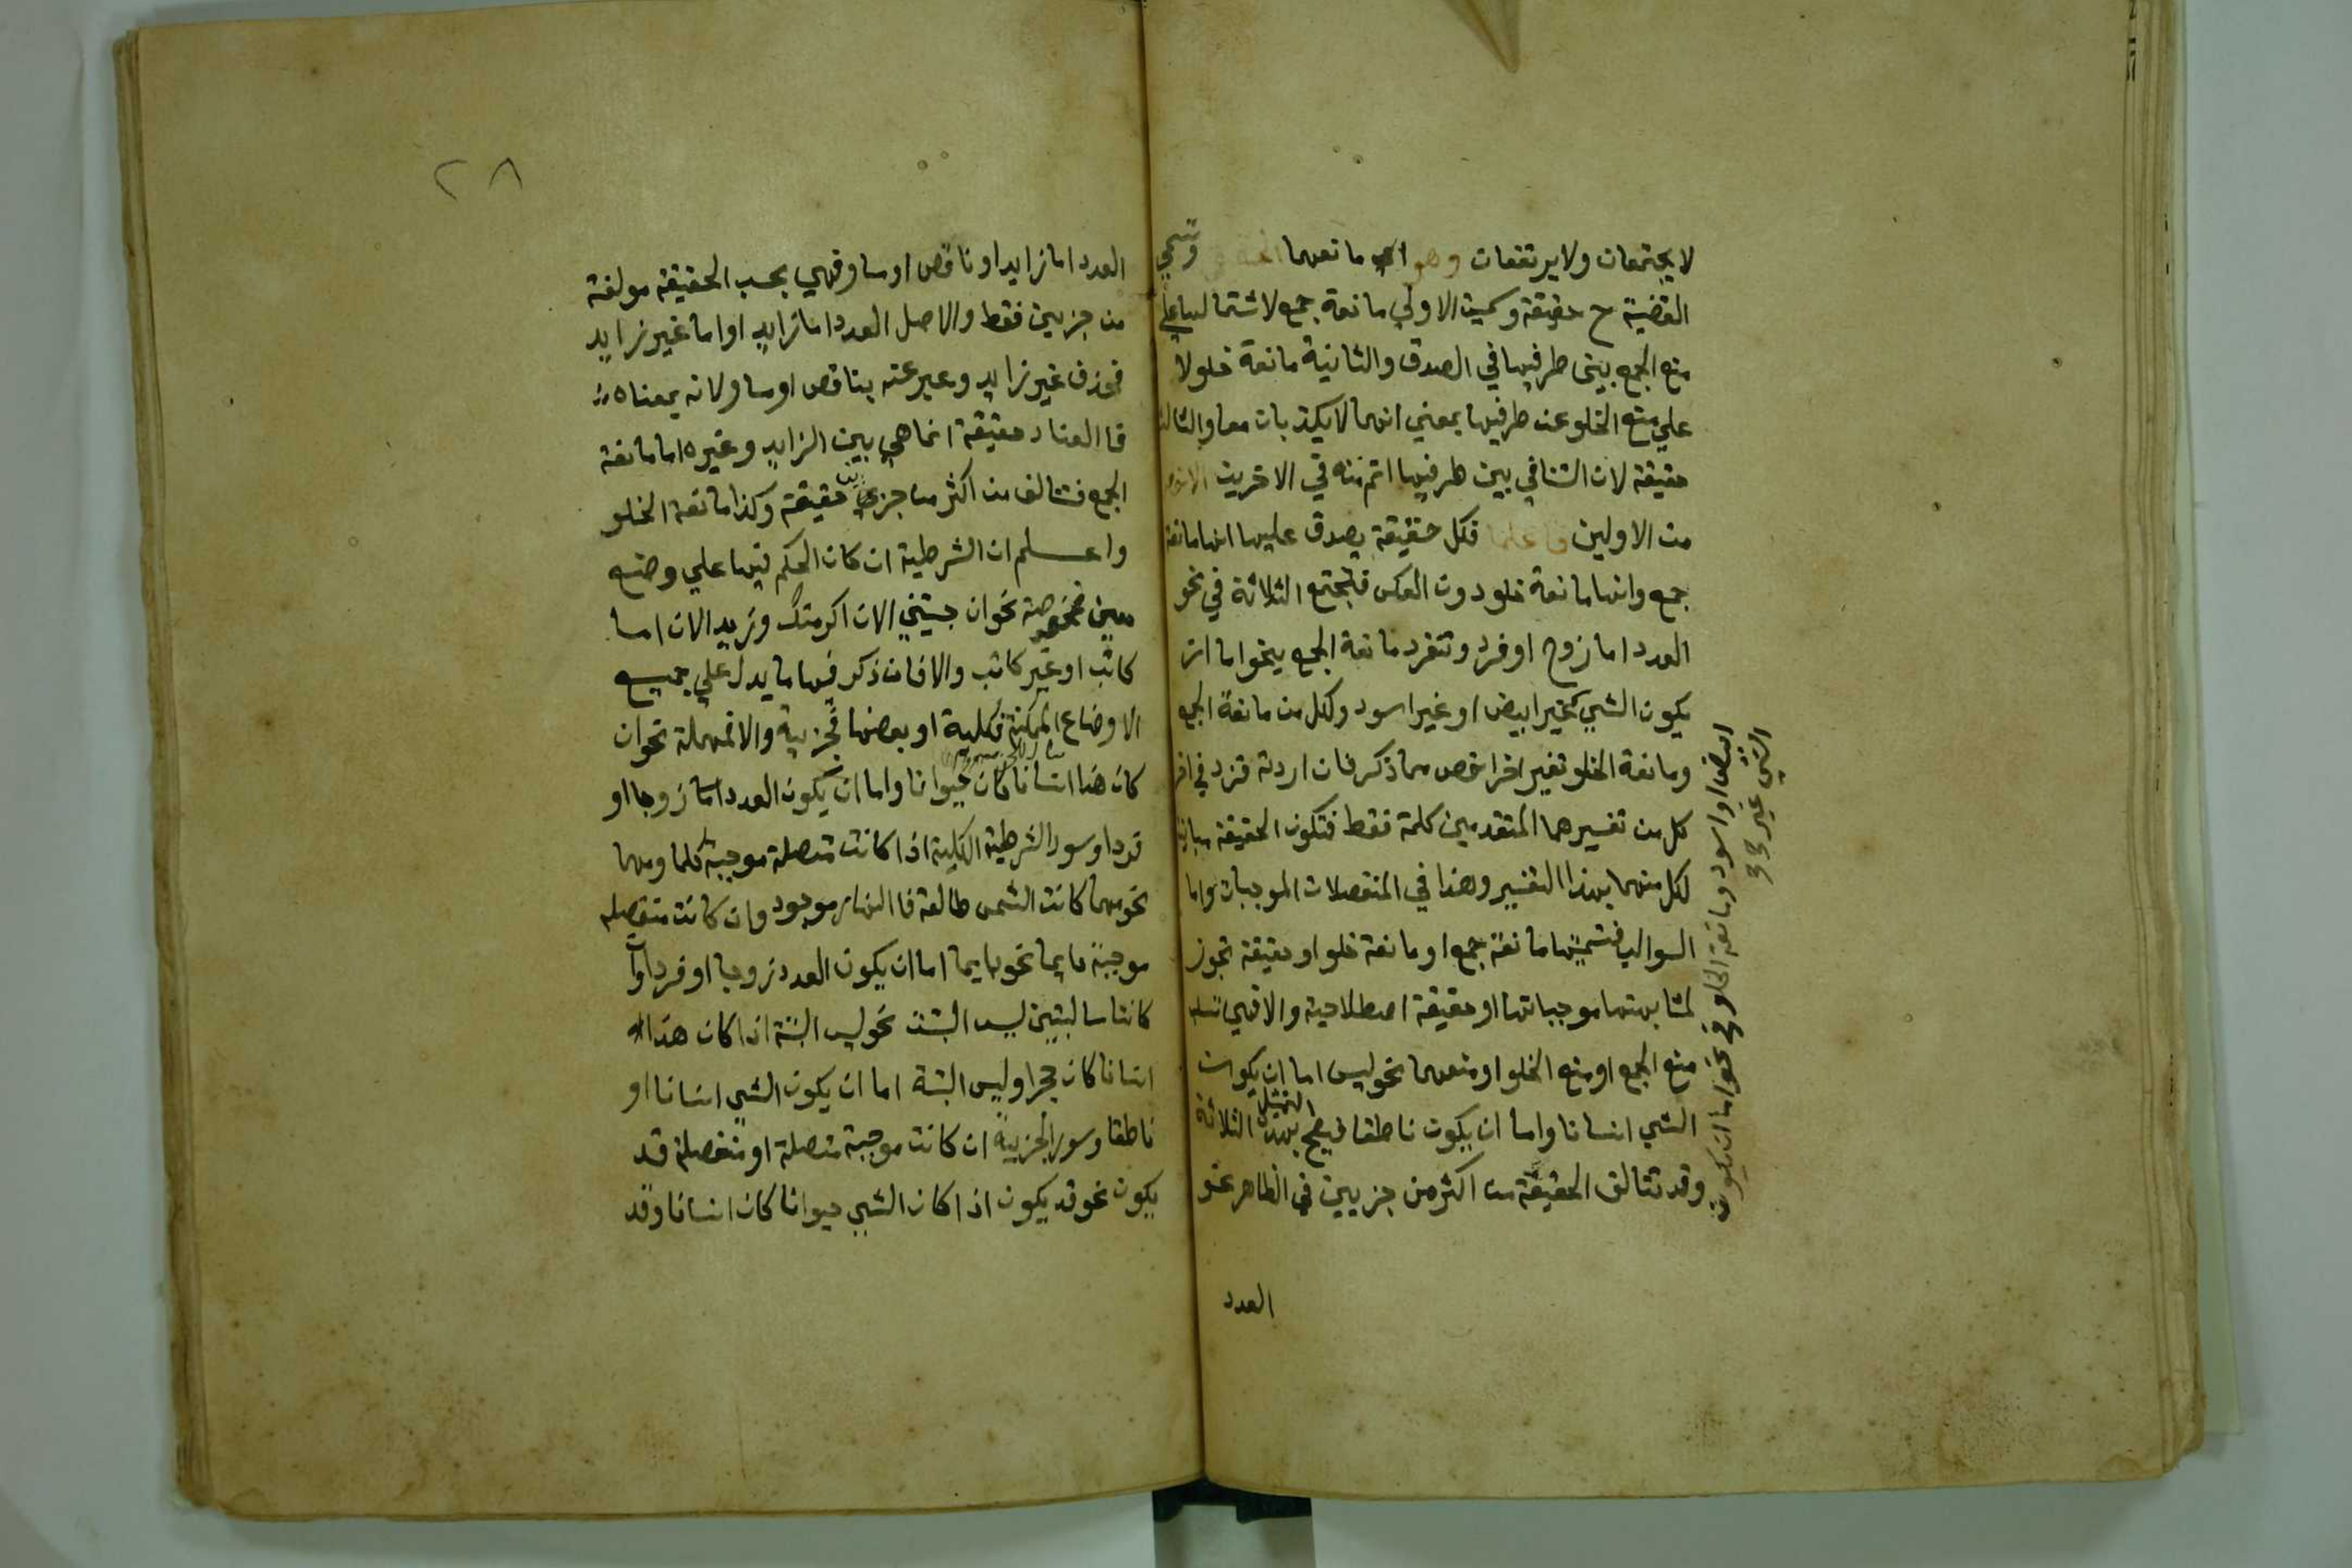 لا يجتمعان ولا يرتفعان وهو اي مانعهما وتسمي
القضية ح حقيقة وسميت الاولي مانعة جمع لاشتمالها علي
منع الجمع بين طرفيها في الصدق والثانية مانعة خلو لا
علي منع الخلو عن طرفيها بمعني انهما لا يكذبان معا والثالثة
حقيقة لان التنافي بين طرفيها اتم منه في الاخريين
من الاولين فكل حقيقة يصدق عليها انها مانعة
جمع وانها مانعة خلو دون العكس فتجتمع الثلاثة في نحو
العدد اما زوج او فرد وتنفرد مانعة الجمع بنحو اما ان
يكون الشي غير ابيض او غير اسود ولكل من مانعة الجمع
ومانعة الخلو تفسير اخر اخص مما ذكر فان اردته فزد في اخر
كل من تفسيرهما المتقدمين كلمة فقط فتكون الحقيقة مباينة
لكل منهما بهذا التفسير وهذا في المنفصلات الموجبات واما
السوالب فتسميتها مانعة جمع او مانعة خلو او حقيقة تجوز
لمشابهتها موجباتها او حقيقة اصطلاحية والا فهي تسلب
منع الجمع او منع الخلو او منعهما نحو ليس اما ان يكون
الشي انسانا واما ان يكون ناطقا فيصح بهذا التمثيل الثلاثة
وقد تتالف الحقيقة من اكثر من جزيين في الظاهر نحو
العدد
ابيض او اسود ومانعة الخلو في نحو اما ان يكون
الشي غير
٢٨
العدد اما زايد او ناقص او مساو فهي بحسب الحقيقة مولفة
من جزيين فقط والاصل العدد اما زايد او اما غير زايد
فحذف غير زايد وعبر عنه بناقص او مساو لانه بمعناه
فا العناد حقيقة انما هي بين الزايد وغيره اما مانعة
الجمع فتتالف من اكثر من جزيين حقيقة وكذا مانعة الخلو
واعلم ان الشرطية ان كان الحكم فيها علي وضع
معين فمخصوصة نحو ان جيتني الان اكرمتك وزيد الان اما
كاتب او غير كاتب والا فان ذكر فيها ما يدل علي جميع
الاوضاع الممكنة فكلية او بعضها فجزيية والا فمهملة نحو ان
كان هذا انسانا كان حيوانا واما ان يكون العدد اما زوجا او
فردا وسور الشرطية الكلية اذا كانت متصلة موجبة كلما ومهما
نحو مهما كانت الشمس طالعة فا النهار موجود وان كانت منفصلة
موجبة دايما نحو دايما اما ان يكون العدد زوجا او فردا وان
كانتا سالبتين ليس البتة نحو ليس البتة اذا كان هذا
انسانا كان حجرا وليس البتة اما ان يكون الشي انسانا او
ناطقا وسور الجزيية ان كانت موجبة متصلة او منفصلة قد
يكون نحو قد يكون اذا كان الشي حيوانا كان انسانا وقد